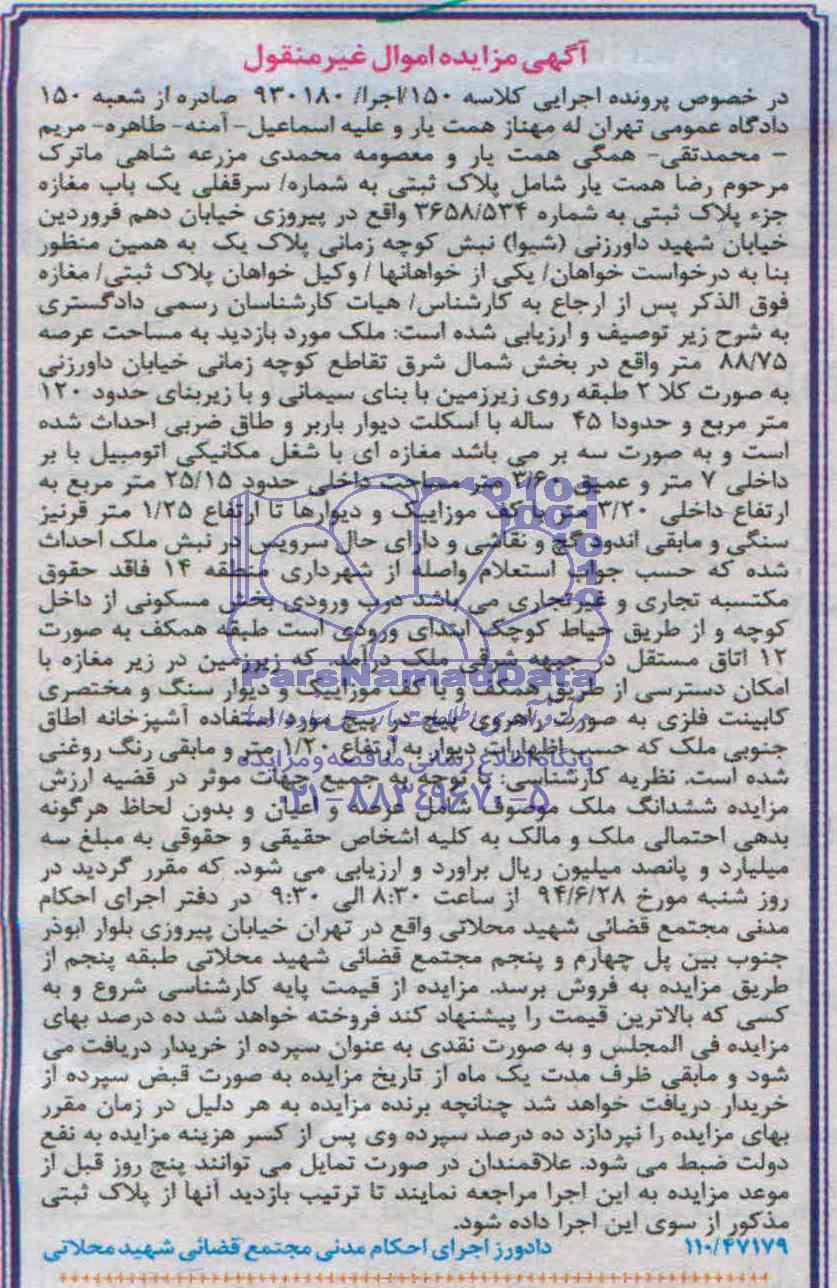 آگهی مزایده اموال غیر منقول
در خصوص پرونده اجرایی کلاسه ۱۵۰/اجرا/ ۹۳۰۱۸۰ صادره از شعبه ۱۵۰
دادگاه عمومی تهران له مهناز همت یار و علیه اسماعیل- آمنه- طاهره- مریم
- محمدتقی- همگی همت یار و معصومه محمدی مزرعه شاهی ماترک
مرحوم رضا همت یار شامل پلاک ثبتی به شماره/ سرقفلی یک باب مغازه
جزء پلاک ثبتی به شماره ۳۶۵۸/۵۳۴ واقع در پیروزی خیابان دهم فروردین
خیابان شهید داورزنی (شیوا) نبش کوچه زمانی پلاک یک به همین منظور
بنا به درخواست خواهان/ یکی از خواهانها / وکیل خواهان پلاک ثبتی/ مغازه
فوق الذکر پس از ارجاع به کارشناس/ هیات کارشناسان رسمی دادگستری
به شرح زیر توصیف و ارزیابی شده است: ملک مورد بازدید به مساحت عرصه
۸۸/۷۵ متر واقع در بخش شمال شرق تقاطع کوچه زمانی خیابان داورزنی
به صورت کلا ۲ طبقه روی زیرزمین با بنای سیمانی و با زیربنای حدود ۱۲۰
متر مربع و حدودا ۴۵ ساله با اسکلت دیوار باربر و طاق ضربی احداث شده
است و به صورت سه بر می باشد مغازه ای با شغل مکانیکی اتومبیل با بر
داخلی ۷ متر و عمیق ۳/۶۰ متر مساحت داخلی حدود ۲۵/۱۵ متر مربع به
ارتفاع داخلی ۳/۲۰ متر با کف موزاییک و دیوارها تا ارتفاع ۱/۲۵ متر قرنیز
سنگی و مابقی اندود گچ و نقاشی و دارای حال سرویس در نبش ملک احداث
شده که حسب جواب استعلام واصله از شهرداری منطقه ۱۴ فاقد حقوق
مکتسبه تجاری و غیرتجاری می باشد درب ورودی بخش مسکونی از داخل
کوچه و از طریق حیاط کوچک ابتدای ورودی است طبقه همکف به صورت
۱۲ اتاق مستقل در جبهه شرقی ملک درآمد. که زیرزمین در زیر مغازه با
امکان دسترسی از طریق همکف و با کف موزاییک و دیوار سنگ و مختصری
کابینت فلزی به صورت راهروی پیچ در پیچ مورد استفاده آشپزخانه اطاق
جنوبی ملک که حسب اظهارات دیوار به ارتفاع ۱/۲۰ متر و مابقی رنگ روغنی
شده است. نظریه کارشناسی: با توجه به جمیع جهات موثر در قضیه ارزش
مزایده ششدانگ ملک موصوف شامل عرصه و اعیان و بدون لحاظ هرگونه
بدهی احتمالی ملک و مالک به کلیه اشخاص حقیقی و حقوقی به مبلغ سه
میلیارد و پانصد میلیون ریال براورد و ارزیابی می شود. که مقرر گردید در
روز شنبه مورخ ۹۴/۶/۲۸ از ساعت ۸:۳۰ الی ۹:۳۰ در دفتر اجرای احکام
مدنی مجتمع قضائی شهید محلاتی واقع در تهران خیابان پیروزی بلوار ابوذر
جنوب بین پل چهارم و پنجم مجتمع قضائی شهید محلاتی طبقه پنجم از
طریق مزایده به فروش برسد. مزایده از قیمت پایه کارشناسی شروع و به
کسی که بالاترین قیمت را پیشنهاد کند فروخته خواهد شد ده درصد بهای
مزایده فی المجلس و به صورت نقدی به عنوان سپرده از خریدار دریافت می
شود و مابقی ظرف مدت یک ماه از تاریخ مزایده به صورت قبض سپرده از
خریدار دریافت خواهد شد چنانچه برنده مزایده به هر دلیل در زمان مقرر
بهای مزایده را نپردازد ده درصد سپرده وی پس از کسر هزینه مزایده به نفع
دولت ضبط می شود. علاقمندان در صورت تمایل می توانند پنج روز قبل از
موعد مزایده به این اجرا مراجعه نمایند تا ترتیب بازدید آنها از پلاک ثبتی
مذکور از سوی این اجرا داده شود.
۱۱۰/۴۷۱۷۹ دادورز اجرای احکام مدنی مجتمع قضائی شهید محلاتی
ParsNamadData
پایگاه اطلاع رسانی مناقصه و مزایده
۰۲۱-۸۸۳۴۹۶۷۰-۵